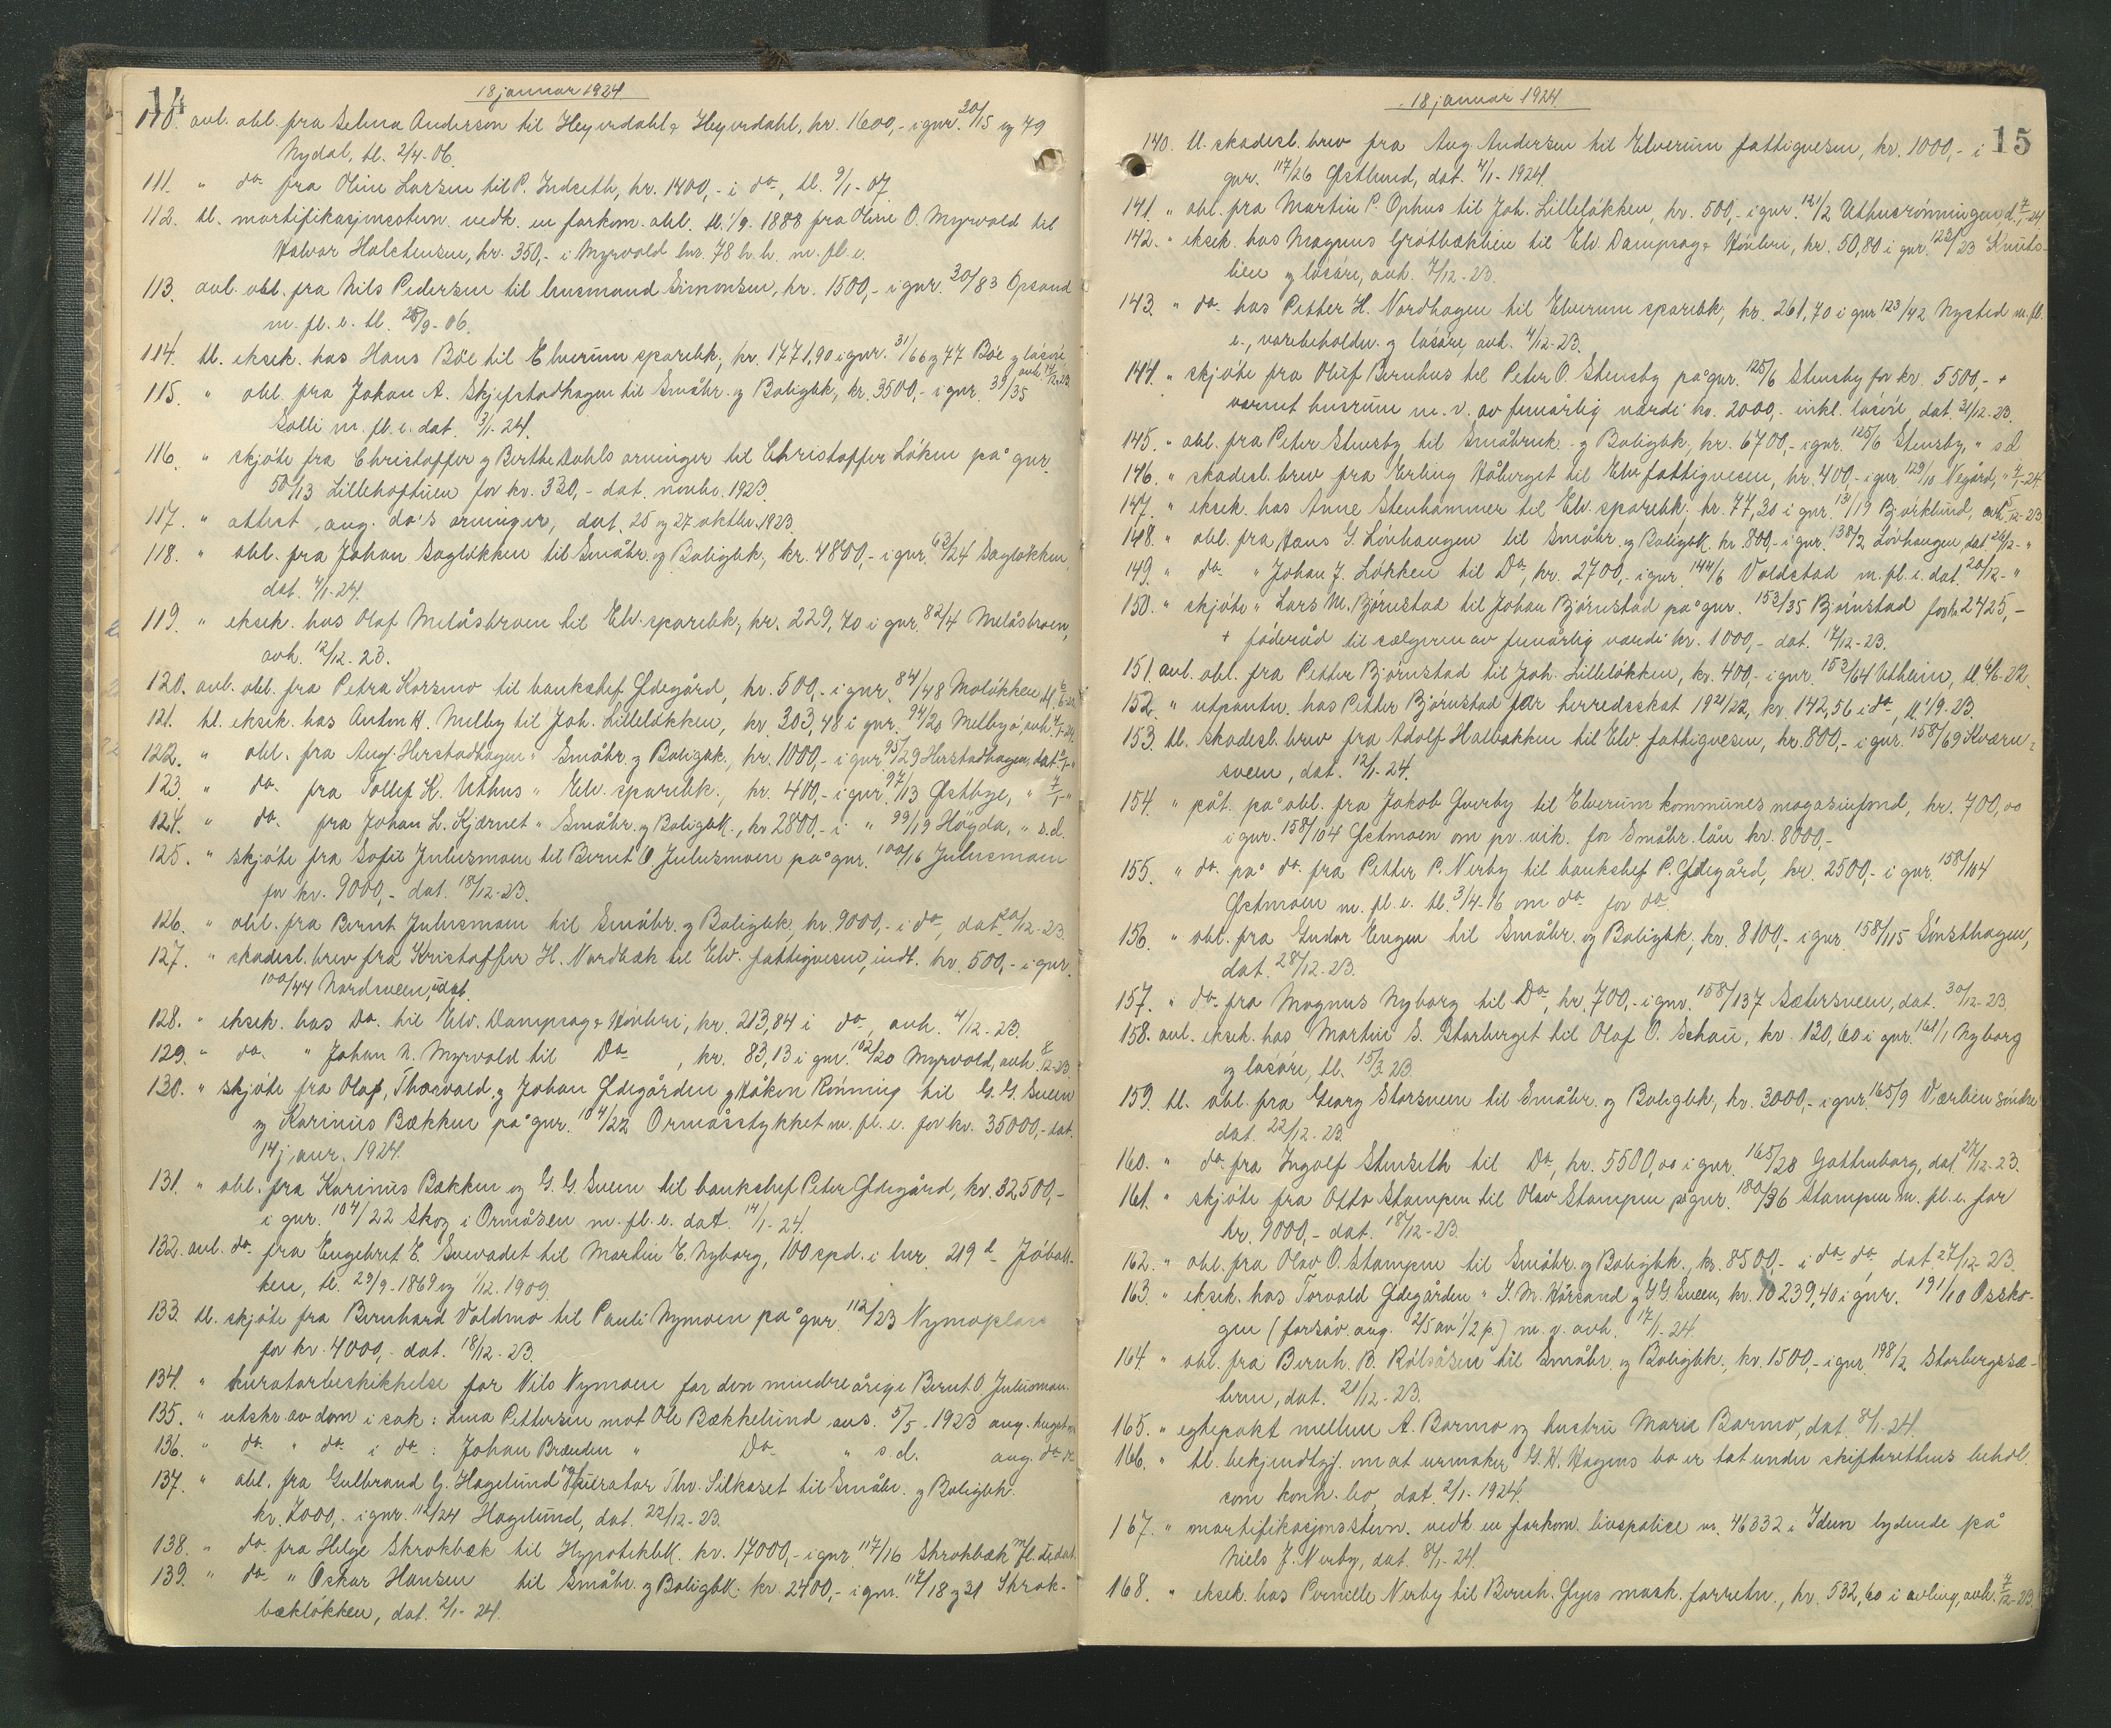 14
18 januar 1924.
110. avl. obl. fra Selma Anderson til Heyerdahl & Heyerdahl, kr. 1600,- i gnr. 20/15 og 79
Nydal, tl. 2/4-06.
111. " do. fra Oline Larsen til P. Indseth, kr. 1400,- i do, tl. 9/1-07.
112. tl. mortifikasjonsstevn. vedk. en forkom. obl. tl. 1/9. 1888 fra Oline O. Myrvold til
Halvor Halstensen, kr. 350,- i Myrvold lnr. 78 h. h. m. fl. e.
113. avl. obl. fra Nils Pedersen til lensmand Simonsen, kr. 1500,- i gnr. 30/83 Opsand
m. fl. e. tl. 28/9-06.
114. tl. eksek. hos Hans Böe til Elverum sparebk, kr. 1771,90 i gnr. 31/66 og 77 Böe og lösöre,
avh. 14/12-23
115. " obl. fra Johan A. Skjefstadhagen til Småbr. og Boligbk, kr. 3500,- i gnr. 39/35
Solli m. fl. e. dat. 3/1-24.
116. " skjöte fra Christoffer og Berthe Dahls arvinger til Christoffer Löken på gnr.
50/13 Lillehoftuen for kr. 330,- dat. novbr. 1923.
117. " attest ang. do's arvinger, dat. 25 og 27 oktbr. 1923.
118. " obl. fra Johan Saglökken til Småbr. og Boligbk, kr. 4800,- i gnr. 63/24 Saglökken,
dat. 4/1-24.
119. " eksek. hos Olaf Melåsbroen til Elv. sparebk, kr. 229,70 i gnr. 82/4 Melåsbroen,
avh. 12/12-23.
120. avl. obl. fra Petra Korsmo til bankchef Ödegård, kr. 500,- i gnr. 84/48 Molökken,
121. tl. eksek. hos Anton H. Melby til Joh. Lillelökken, kr. 303,48 i gnr. 94/20 Melbyö, avh. 4/1-24.
122. " obl. fra Aug. Herstadhagen " Småbr. og Boligbk., kr. 1000,- i gnr. 95/29 Herstadhagen, dat.
123. " do. fra Tollef K. Uthus " Elv. sparebk., kr. 400,- i gnr. 97/13 Östbye, " 7/1-"
124. " do. fra Johan L. Kjærnet " Småbr. og Boligbk., kr. 2800,- i " 99/19 Högda, " s.d.
125. " skjöte fra Sofie Julusmoen til Bernt O. Julusmoen på gnr. 100/16 Julusmoen
for kr. 9000,- dat. 18/12-23.
126. " obl. fra Bernt Julusmoen til Småbr. og Boligbk, kr. 9000,- i do, dat. 20/12-23.
127. " skadesl. brev fra Kristoffer H. Nordbæk til Elv. fattigvesen, indt. kr. 500,- i gnr.
100/44 Nordsveen, udat.
128. " eksek. hos Do. til Elv. Dampsag & Hövleri, kr. 213,84 i do, avh. 4/12-23.
129. " do. " Johan N. Myrvold til Do, kr. 83,13 i gnr. 102/20 Myrvold, avh. 8/12-23
130. " skjöte fra Olaf, Thorvald og Johan Ödegården og Håkon Rönning til G. G. Sveen
og Karinius Bækken på gnr. 104/22 Ormåsstykket m. fl. e. for kr. 35000,- dat.
14 janr. 1924.
131. " obl. fra Karinius Bækken og G. G. Sveen til bankchef Peter Ödegård, kr. 32500,-
i gnr. 104/22 Skog i Ormåsen m. fl. e. dat. 14/1-24.
132. avl. do. fra Engebret E. Svevadet til Martin E. Nyborg, 100 spd. i lnr. 219 d Jöbak-
ken, tl. 29/9-1869 og 1/12. 1909.
133. tl. skjöte fra Bernhard Voldmo til Pauli Nymoen på gnr. 112/23 Nymoplass
for kr. 4000,- dat. 18/12-23.
134. " kuratorbeskikkelse for Nils Nymoen for den mindreårige Bernt O. Julusmoen.
135. " utskr av dom i sak: Lina Pettersen mot Ole Bækkelund avs. 5/5-1923 ang. hugst
136. " do. " do. i do.: Johan Brænden " Do " s.d. ang. do.
137. " obl. fra Gulbrand G. Hagelund og kurator Thv. Silkoset til Småbr. og Boligbk.
kr. 7000,- i gnr. 112/24 Hagelund, dat. 22/12-23.
138. " do. fra Helge Skrokbæk til Hypotekbk. kr. 17000,- i gnr. 117/16 Skrokbæk m. fl. udat.
139. " do. " Oskar Hansen til Småbr. og Boligbk. kr. 2400,- i gnr. 117/18 og 31 Skrok-
bæklökken, dat. 2/1-24.
15
18 januar 1924
140. tl. skadesl. brev fra Aug. Andersen til Elverum fattigvesen, kr. 1000,- i
gnr. 117/26 Östlund, dat. 4/1-1924.
141. " obl. fra Martin P. Ophus til Joh. Lillelökken, kr. 500,- i gnr. 121/2 Uthusrönningen d. 7/1-24.
142. " eksek. hos Magnus Gråtbækken til Elv. Dampsag & Hövleri, kr. 50,80 i gnr. 123/23 Knuts-
lien og lösöre, avh. 7/12-23.
143. " do. hos Petter H. Nordhagen til Elverum sparebk, kr. 261,70 i gnr. 123/42 Nysted m. fl.
e., varebeholdn. og lösöre, avh. 4/12-23.
144. " skjöte fra Oluf Bernhus til Peter O. Stensby på gnr. 125/6 Stensby for kr. 5500,- +
varmt husrum m. v. av femårlig værdi kr. 2000,- inkl. lösöre, dat. 31/12-23.
145. " obl. fra Peter Stensby til Småbruk- og Boligbk, kr. 6700,- i gnr. 125/6 Stensby, " s.d.
146. " skadesl. brev fra Erling Håberget til Elv. fattigvesen, kr. 400,- i gnr. 129/10 Vegård, " 4/1-24.
147. " eksek. hos Anne Stenhammer til Elv. sparebk, kr. 77,30 i gnr. 131/19 Björklund, avh. 5/12-23
148. " obl. fra Hans G. Lövhaugen til Småbr. og Boligbk. kr. 800,- i gnr. 138/2 Lövhaugen, dat. 20/12-"
149. " do. " Johan J. Lökken til Do, kr. 2700,- i gnr. 144/6 Voldstad m. fl. e. dat. 20/12-"
150. " skjöte " Lars M. Björnstad til Johan Björnstad på gnr. 153/35 Björnstad for kr. 2425,-
+ föderåd til sælgeren av femårlig værdi kr. 1000,- dat. 17/12-23.
151. avl. obl. fra Petter Björnstad til Joh. Lillelökken, kr. 400,- i gnr. 153/64 Utheim, tl. 4/6-22.
152. " utpantn. hos Petter Björnstad for herredsskat 1921/22, kr. 142,56 i do, tl. 1/9-23.
153. tl. skadesl. brev fra Adolf Halbakken til Elv. fattigvesen, kr. 800,- i gnr. 158/69 Kværn-
sveen, dat. 12/1-24.
154. " påt. på obl. fra Jakob Gverby til Elverum kommunes magasinfond, kr. 700,00
i gnr. 158/104 Östmoen om pr. vik. for Småbr. lån kr. 8000,-
155. " do. på do. fra Petter P. Nerby til bankchef P. Ödegård, kr. 2500,- i gnr. 158/104
Östmoen m. fl. e. tl. 3/4-16 om do for do.
156. " obl. fra Gudor Engen til Småbr. og Boligbk, kr. 8100,- i gnr. 158/115 Sönsthagen,
dat. 28/12-23.
157. " do. fra Magnus Nyborg til Do, kr. 700,- i gnr. 158/137 Sætersveen, dat. 30/12-23
158. avl. eksek. hos Martin S. Storberget til Olaf O. Schou, kr. 120,60 i gnr. 161/1 Nyborg
og lösöre, tl. 15/3-23.
159. tl. obl. fra Georg Storsveen til Småbr. og Boligbk, kr. 3000,- i gnr. 165/9 Værlien söndre
dat. 22/12-23.
160. " do. fra Ingolf Stenseth til Do, kr. 5500,00 i gnr. 165/28 Gottenborg, dat. 27/12-23.
161. " skjöte fra Otto Stampen til Olav Stampen på gnr. 180/36 Stampen m. fl. e. for
kr. 9000,- dat. 18/12-23.
162. " obl. fra Olav O. Stampen til Småbr. og Boligbk., kr. 8500,- i do. do, dat. 27/12-23.
163. " eksek. hos Torvald Ödegården " I. M. Hörsand og G. G. Sveen, kr. 10239,40 i gnr. 191/10 Ossko-
gen (forsåv. ang. 2/5 av 1/2 p.) m. v. avh. 17/1-24.
164. " obl. fra Bernh. B. Rölsåsen til Småbr. og Boligbk, kr. 1500,- i gnr. 198/2 Storbergssæ-
teren, dat. 21/12-23.
165. " egtepakt mellem A. Barmo og hustru Maria Barmo, dat. 8/1-24.
166. " tl. bekjendtgj. om at urmaker G. H. Hagens bo er tat under skifterettens behdl.
som konk. bo, dat. 2/1-1924.
167. " mortifikasjonsstevn. vedk. en forkom. livspolice nr. 46332 i Idun lydende på
Niels J. Nerby, dat. 8/1-24.
168. " eksek. hos Pernille Nerby til Bernh. Gjes mask. forretn., kr. 532,60 i avling, avh. 7/12-23.